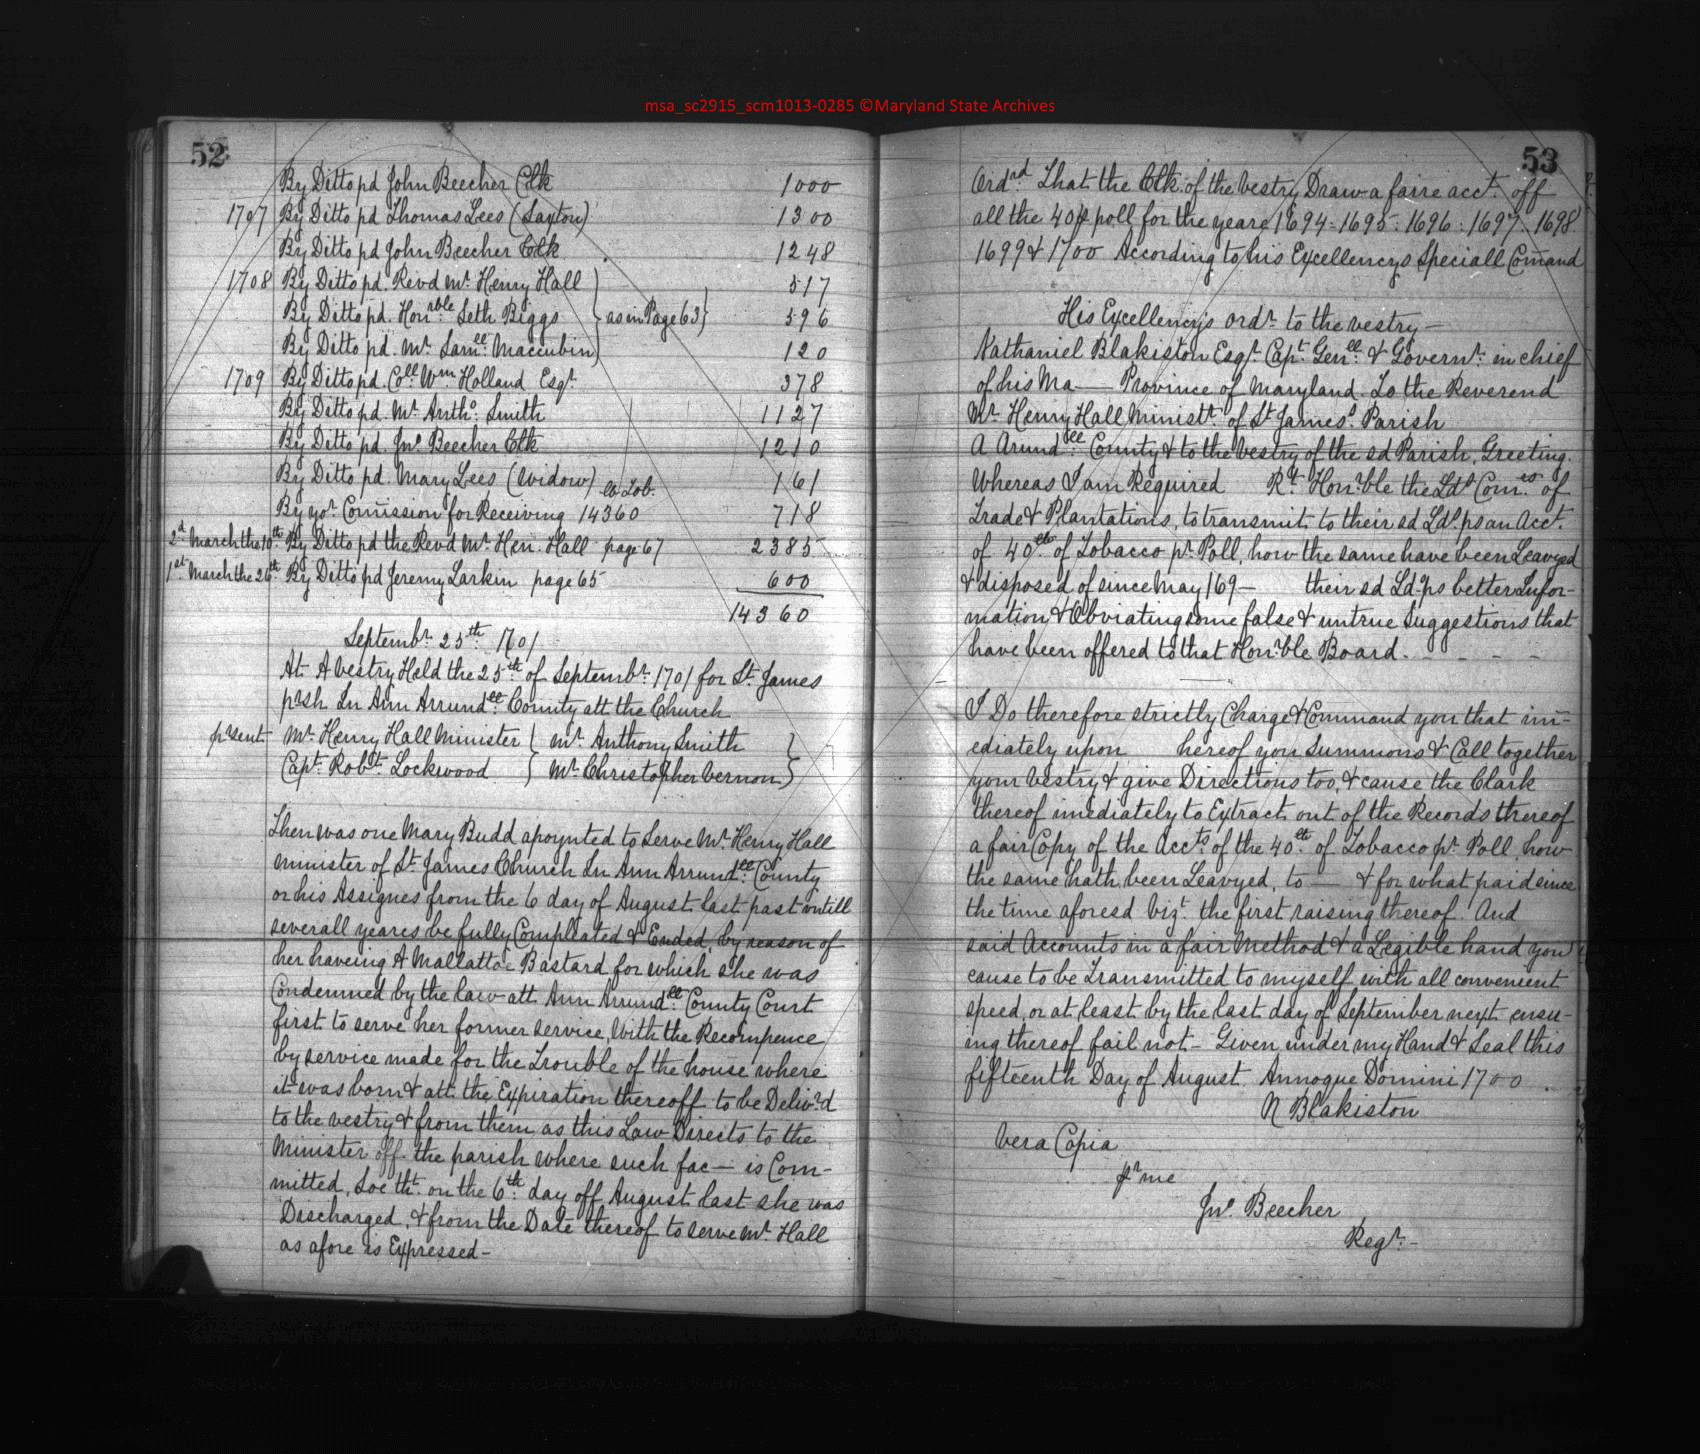 msa_sc2915_scm1013-0285 ©Maryland State Archives
52
By Ditto pd John Beecher Clk 1000
1707 By Ditto pd Thomas Lees (Saxton) 1300
By Ditto pd John Beecher Clk 1248
1708 By Ditto pd. Revd Mr. Henry Hall 517
By Ditto pd. Honrble Seth Biggs } as in Page 63} 596
By Ditto pd. Mr. Samell. Maccubin 120
1709 By Ditto pd. Coll. Wm Holland Esqr. 378
By Ditto pd. Mr. Antho. Smith 1127
By Ditto pd. Jno. Beecher Clk 1210
By Ditto pd. Mary Lees (Widow) 161
By yor. Comission for Receiving 14360 lb Tob. 718
2d March the 10th. By Ditto pd the Revd Mr. Hen. Hall page 67 2385
1st. March the 26th. By Ditto pd Jeremy Larkin page 65 600
14360
Septembr. 25th 1701
At A vestry Held the 25th. of Septembr. 1701 for St. James
prsh In Ann Arrundell. County att the Church
prsent Mr. Henry Hall Minister } Mr. Anthony Smith }
Capt. Robtt. Lockwood } Mr. Christopher Vernon }
Then was one Mary Budd apoynted to Serve Mr. Henry Hall
minister of St. James Church In Ann Arrundell. County
or his Assignes from the 6 day of August last past untill
severall yeares be fully Compleated & Ended, by reason of
her haveing A Mallattoe Bastard for which she was
Condemned by the law att Ann Arrundell. County Court
first to serve her former service, With the Recompence
by service made for the Trouble of the house where
it was born & att the Expiration thereoff to be Delivrd
to the vestry & from them as this Law Directs to the
Minister off the parish where such fac— is Com-
mitted, Soe tht. on the 6th. day off August last she was
Discharged, & from the Date thereof to serve Mr. Hall
as afore is Expressed-
53
Ordrd That the Clk. of the vestry Draw a faire acct. off
all the 40 p poll for the years 1694: 1695: 1696: 1697: 1698
1699 & 1700 According to his Excellencys Speciall Comand
His Excellency's ordr. to the vestry—
Nathaniel Blakiston Esqr. Capt. Genll. & Governr. in chief
of his Ma— Province of Maryland. To the Reverend
Mr. Henry Hall Ministr. of St James's. Parish
A Arundell County & to the vestry of the sd Parish, Greeting.
Whereas I am Required Rt. Honrble the Lds Comrs. of
Trade & Plantations, to transmit to their sd Ldps an Acct.
of 40lb. of Tobacco pr. Poll, how the same have been Leavyed
& disposed of since May 169— their sd Ldps better Infor-
mation & Obviating some false & untrue Suggestions that
have been offered to that Honrble Board. - - - -
I Do therefore strictly Charge & Command you that im-
ediately upon hereof you Summons & Call together
your vestry & give Directions too, & cause the Clark
thereof imediately to Extract out of the Records thereof
a fair Copy of the Accts. of the 40lb. of Tobacco pr. Poll, how
the same hath been Leavyed, to — & for what paid since
the time aforesd vizt. the first raising thereof. And
said Accounts in a fair Method & a Legible hand you
cause to be Transmitted to myself with all convenient
speed, or at least by the last day of September next ensu-
ing thereof fail not- Given under my Hand & Seal this
fifteenth Day of August Annoque Domini 1700.
N Blakiston
Vera Copia
pr me
Jno. Beecher
Regr.-